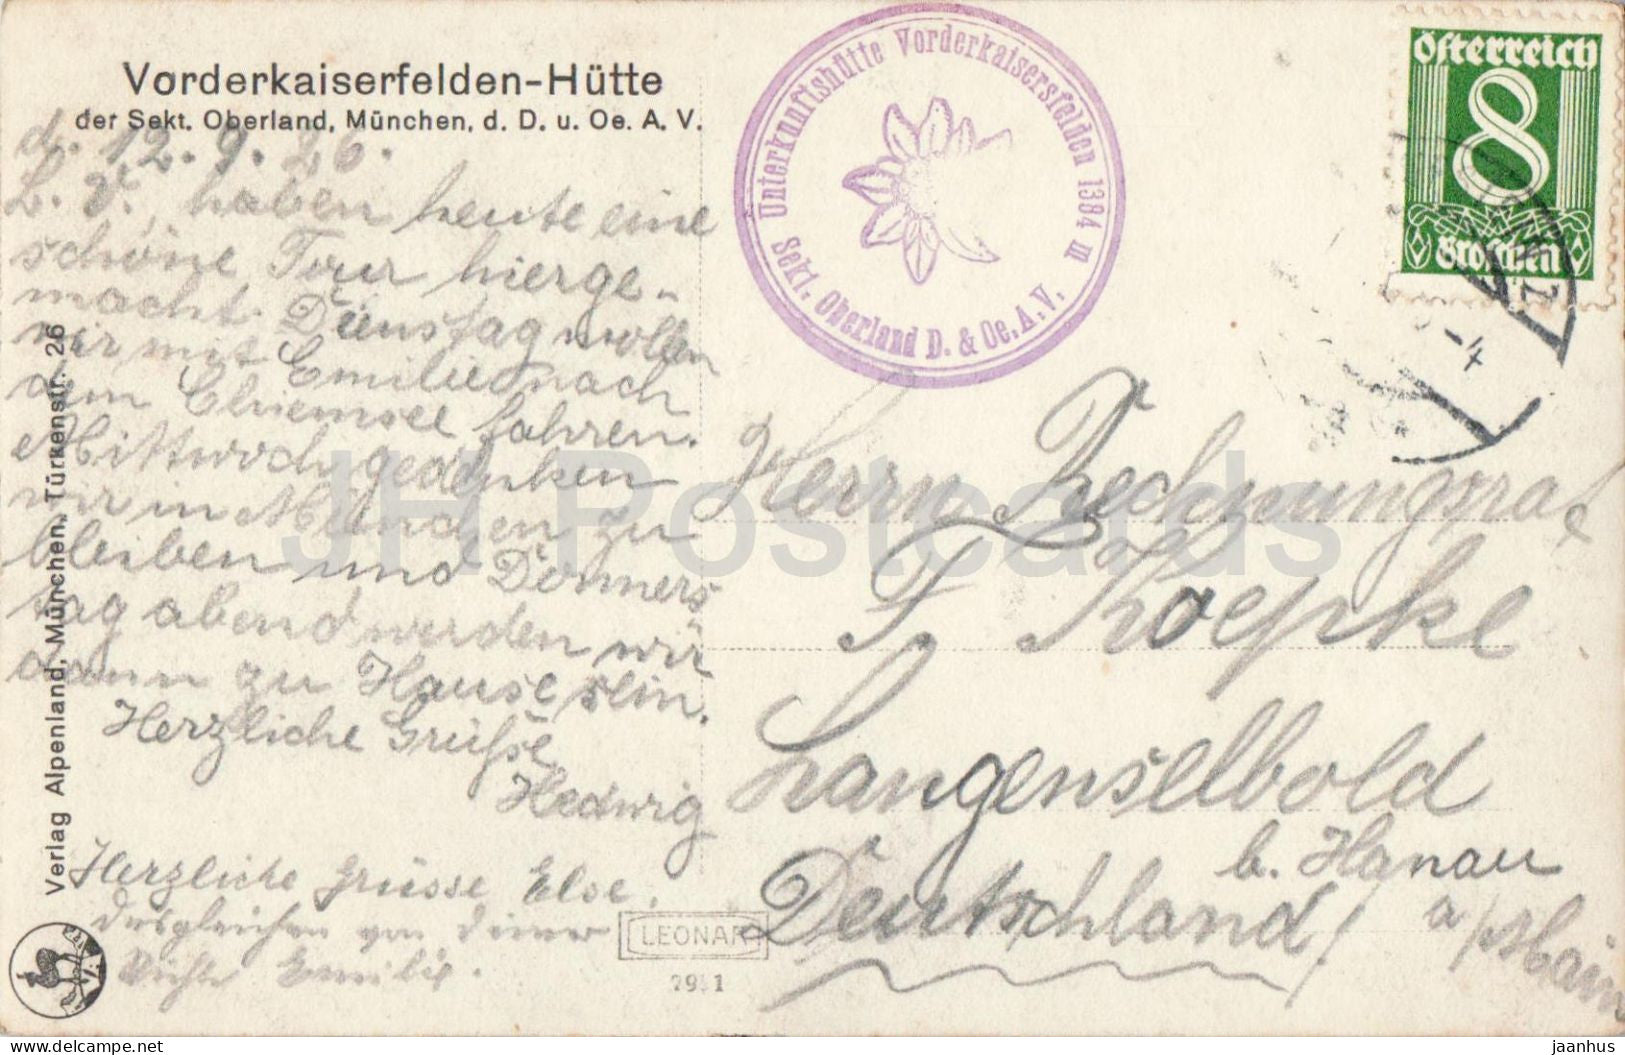 Vorderkaiserfelden-Hütte
der Sekt. Oberland, München, d. D. u. Oe. A. V.
d. 12. 9. 26.
L. V., haben heute eine
schöne Tour hierge-
macht. Dienstag wollen
wir mit Emilie nach
dem Chiemsee fahren.
Mittwoch gedenken
wir in München zu
bleiben und Donners
tag abend werden wir
dann zu Hause sein.
Herzliche Grüße
Hedwig
Herzliche Grüsse Else.
Desgleichen von Deiner
Nichte Emilie.
Verlag Alpenland, München, Türkenstr. 26
Unterkunftshütte Vorderkaisersfelden 1384 m
Sekt. Oberland D. & Oe. A. V.
Österreich
8
Groschen
Herrn Rechnungsrat
F. Koepke
Langenselbold
b. Hanau
a/Main
Deutschland
LEONAR
JH Postcards
jaanhus
delcampe.net